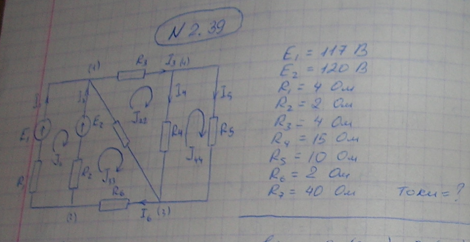 N 2.39
E₁ = 117 В
E₂ = 120 В
R₁ = 4 Ом
R₂ = 2 Ом
R₃ = 4 Ом
R₄ = 15 Ом
R₅ = 10 Ом
R₆ = 2 Ом
R₇ = 40 Ом Токи = ?
(1) R₃ I₃ (4)
I₄ I₅
E₁ E₂ I₂₂
R₄ R₅
I₃₃ I₄₄
R₂ R₆
(3) I₆ (2)